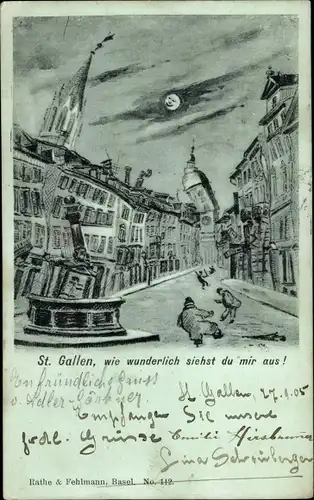 St. Gallen, wie wunderlich siehst du mir aus!
Ein fründlich Gruss
v. Adler-Gärtner
St. Gallen, 27.1.05
Empfangen Sie unsere
frdl. Grüsse Emilie
Lina
Rathe & Fehlmann, Basel. No. 112.